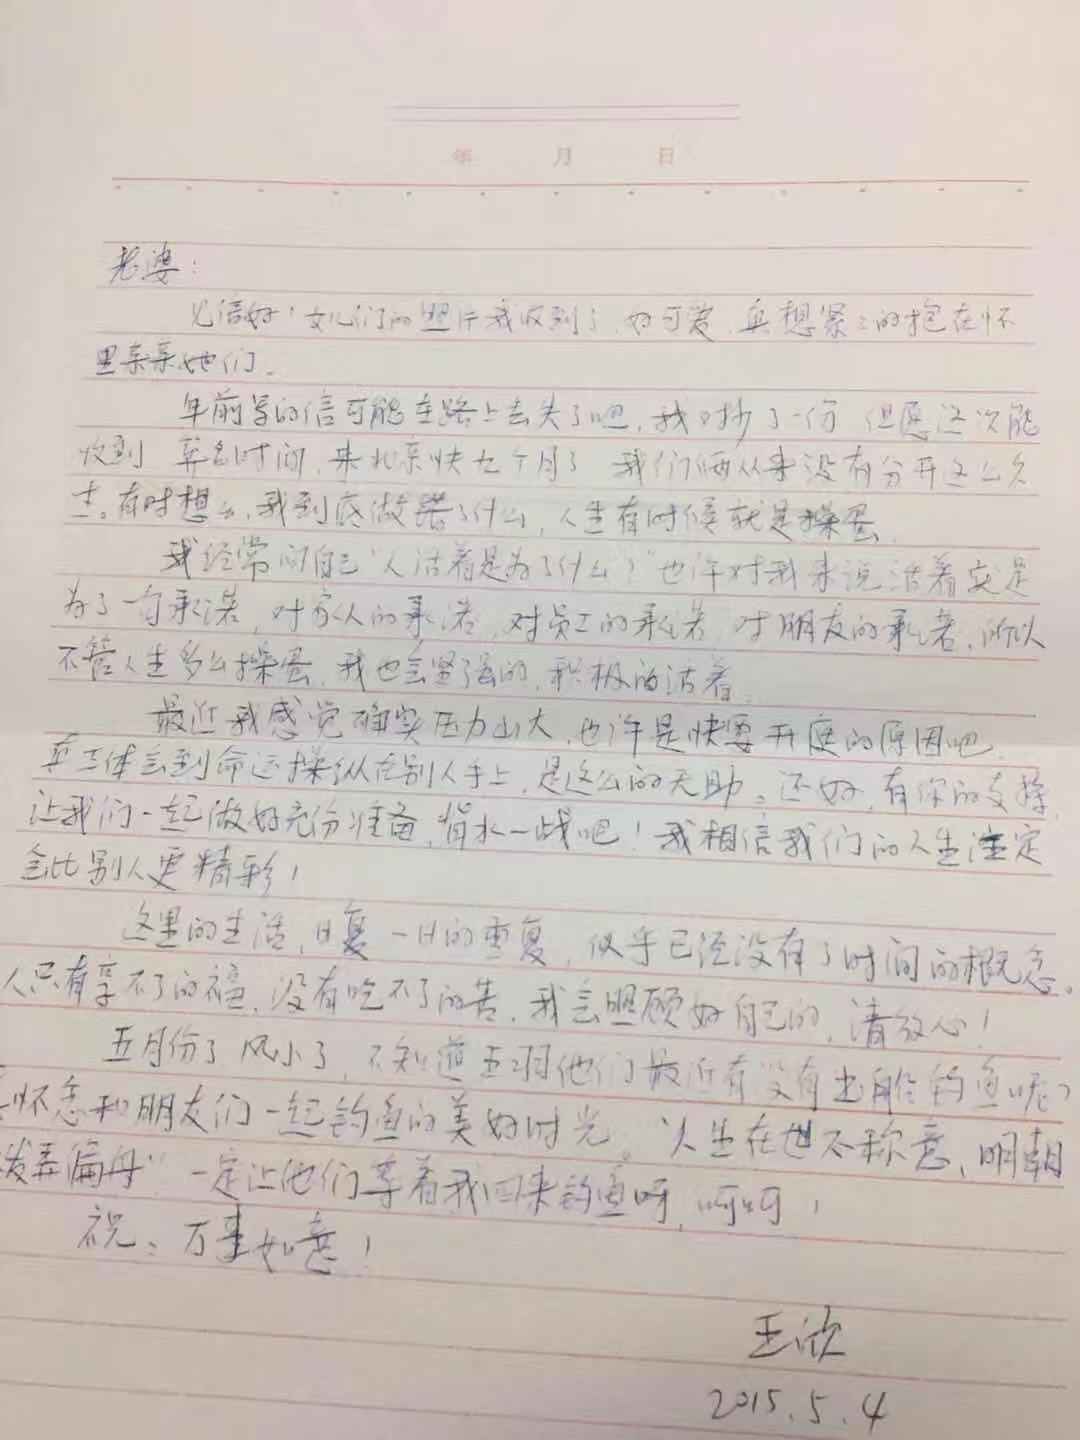 年 月 日
老婆:
见信好!女儿们的照片我收到了,好可爱,真想紧紧的抱在怀
里亲亲她们。
年前写的信可能在路上丢失了吧,我又抄了一份,但愿这次能
收到。算名时间,来北京快九个月了,我们俩从来没有分开这么久
过。有时想想,我到底做错了什么,人生有时候就是操蛋。
我经常问自己"人活着是为了什么?"也许对我来说活着就是
为了一句承诺,对家人的承诺,对员工的承诺,对朋友的承诺,所以
不管人生多么操蛋,我也会坚强的,积极的活着。
最近我感觉确实压力山大,也许是快要开庭的原因吧。
体会到命运操纵在别人手上,是这么的无助。还好,有你的支持,
让我们一起做好充份准备,背水一战吧!我相信我们的人生注定
会比别人更精彩!
这里的生活,日复一日的重复,似乎已经没有了时间的概念。
人只有享不了的福,没有吃不了的苦,我会照顾好自己的,请放心!
五月份了,风小了,不知道他们最近有没有出船钓鱼呢?
怀念和朋友们一起钓鱼的美好时光。"人生在世不称意,明朝
发弄扁舟"一定让他们等着我回来钓鱼呀,呵呵!
祝:万事如意!
王欣
2015.5.4